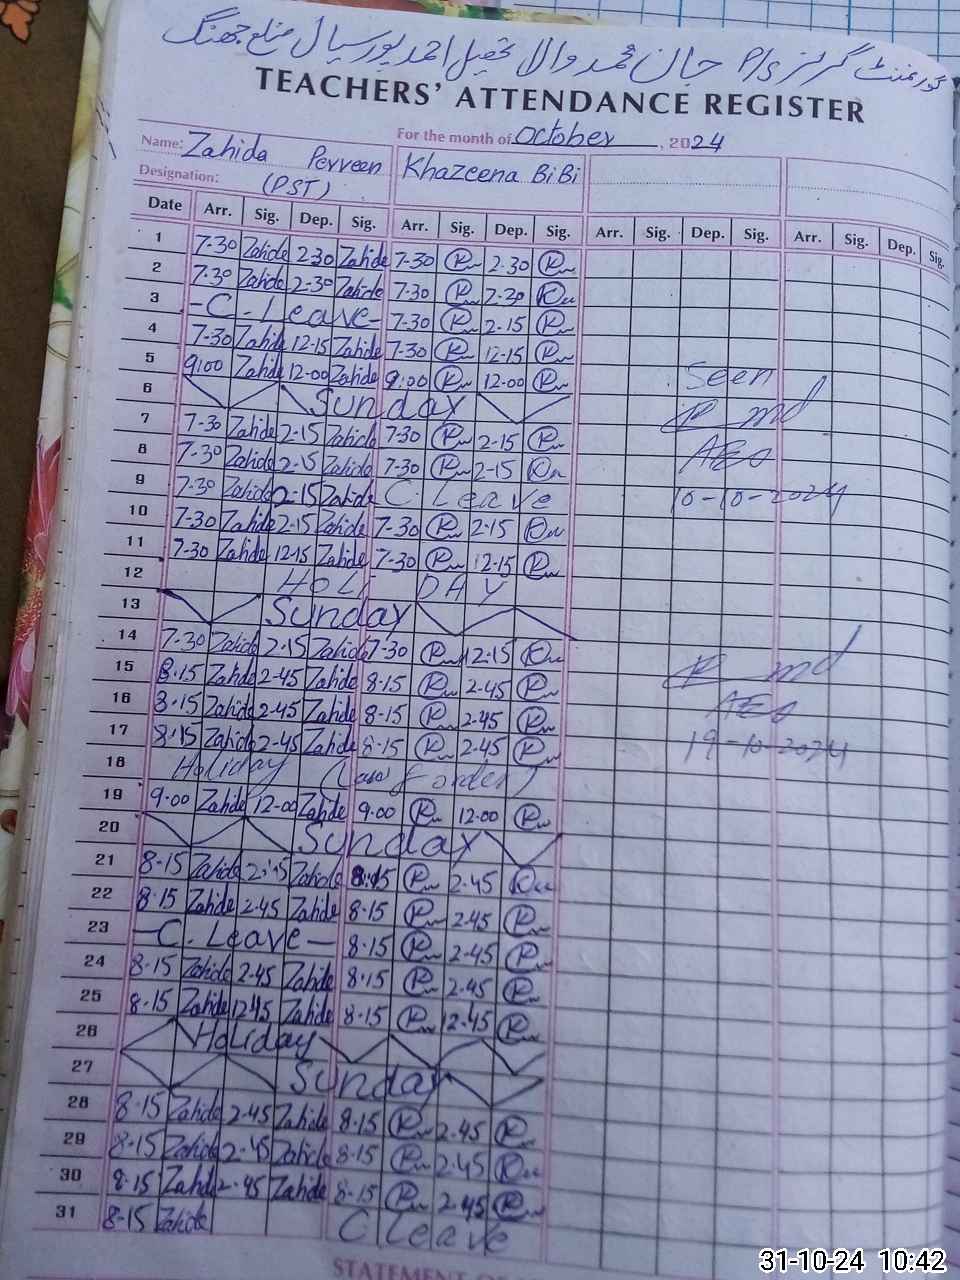 گورنمنٹ گرلز P/s جان محمد والا تحصیل احمد پور سیال ضلع جھنگ
TEACHERS' ATTENDANCE REGISTER
For the month of October, 2024
Name: Zahida Perveen Khazeena BiBi
Designation: (PST)
Date Arr. Sig. Dep. Sig. Arr. Sig. Dep. Sig. Arr. Sig. Dep. Sig. Arr. Sig. Dep. Sig.
1 7-30 Zahide 2-30 Zahide 7-30 2-30
2 7-30 Zahide 2-30 Zahide 7-30 2-30
3 -C. Leave- 7-30 2-15
4 7-30 Zahide 12-15 Zahide 7-30 12-15
5 9:00 Zahide 12-00 Zahide 9:00 12-00 Seen
6 Sunday md
7 7-30 Zahide 2-15 Zahide 7-30 2-15
8 7-30 Zahide 2-15 Zahide 7-30 2-15 AEO
9 7-30 Zahide 2-15 Zahide C. Leave 10-10-2024
10 7-30 Zahide 2-15 Zahide 7-30 2-15
11 7-30 Zahide 12-15 Zahide 7-30 12-15
12 HOLI DAY
13 Sunday
14 7-30 Zahide 2-15 Zahide 7-30 2-15
15 8-15 Zahide 2-45 Zahide 8-15 2-45 md
16 8-15 Zahide 2-45 Zahide 8-15 2-45 AEO
17 8-15 Zahide 2-45 Zahide 8-15 2-45 19-10-2024
18 Holiday
19 9.00 Zahide 12-00 Zahide 9.00 12.00
20 Sunday
21 8-15 Zahide 2-45 Zahide 8-15 2-45
22 8-15 Zahide 2-45 Zahide 8-15 2-45
23 -C. Leave- 8-15 2-45
24 8-15 Zahide 2-45 Zahide 8-15 2-45
25 8-15 Zahide 12-45 Zahide 8-15 12-45
26 Holiday
27 Sunday
28 8-15 Zahide 2-45 Zahide 8-15 2-45
29 8-15 Zahide 2-45 Zahide 8-15 2-45
30 8-15 Zahide 2-45 Zahide 8-15 2-45
31 8-15 Zahide C Leave
STATEMENT OF
31-10-24 10:42